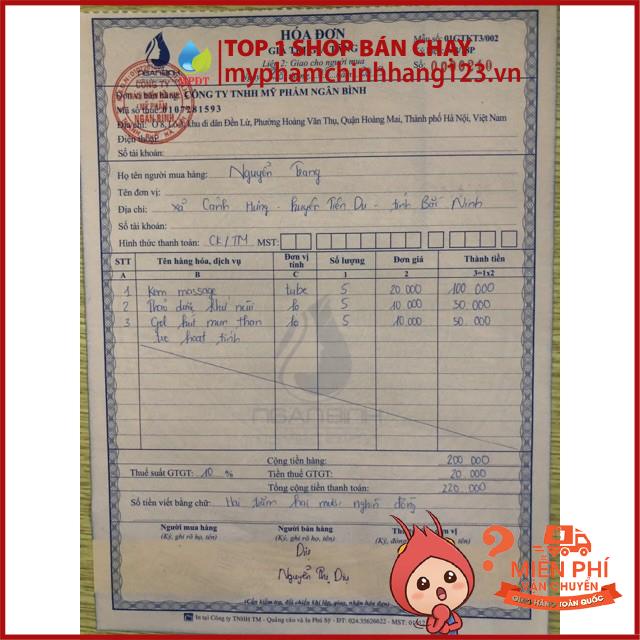 HÓA ĐƠN
Mẫu số: 01GTKT3/002
TOP 1 SHOP BÁN CHẠY
Liên 2: Giao cho người mua
myphamchinhhang123.vn
Số:
NGANBINH
CÔNG TY
MỸ PHẨM
NGÂN BÌNH
Đơn vị bán hàng: CÔNG TY TNHH MỸ PHẨM NGÂN BÌNH
Mã số thuế: 0107281593
Địa chỉ: Ô 8, Lô 1, khu di dân Đền Lừ, Phường Hoàng Văn Thụ, Quận Hoàng Mai, Thành phố Hà Nội, Việt Nam
Điện thoại:
Số tài khoản:
Họ tên người mua hàng: Nguyễn Trang
Tên đơn vị:
Địa chỉ: xã Cảnh Hưng - Huyện Tiên Du - tỉnh Bắc Ninh
Số tài khoản:
Hình thức thanh toán: CK/TM MST:
STT Tên hàng hóa, dịch vụ Đơn vị tính Số lượng Đơn giá Thành tiền
A B C 1 2 3=1x2
1 Kem massage tube 5 20 000 100 000
2 Thảo dược khử mùi lọ 5 10 000 50 000
3 Gel hút mụn than lọ 5 10.000 50 000
tre hoạt tính
NGANBINH
Cộng tiền hàng: 200 000
Thuế suất GTGT: 10 % Tiền thuế GTGT: 20 000
Tổng cộng tiền thanh toán: 220 000
Số tiền viết bằng chữ: Hai trăm hai mươi nghìn đồng
Người mua hàng Người bán hàng
(Ký, ghi rõ họ, tên) (Ký, ghi rõ họ, tên)
Dịu
Nguyễn Thị Dịu
MIỄN PHÍ
VẬN CHUYỂN
GIAO HÀNG TOÀN QUỐC
(Cần kiểm tra, đối chiếu khi lập, giao, nhận hóa đơn)
In tại Công ty TNHH TM - Quảng cáo và In Phú Sỹ - ĐT: 024.35626622 - MST: